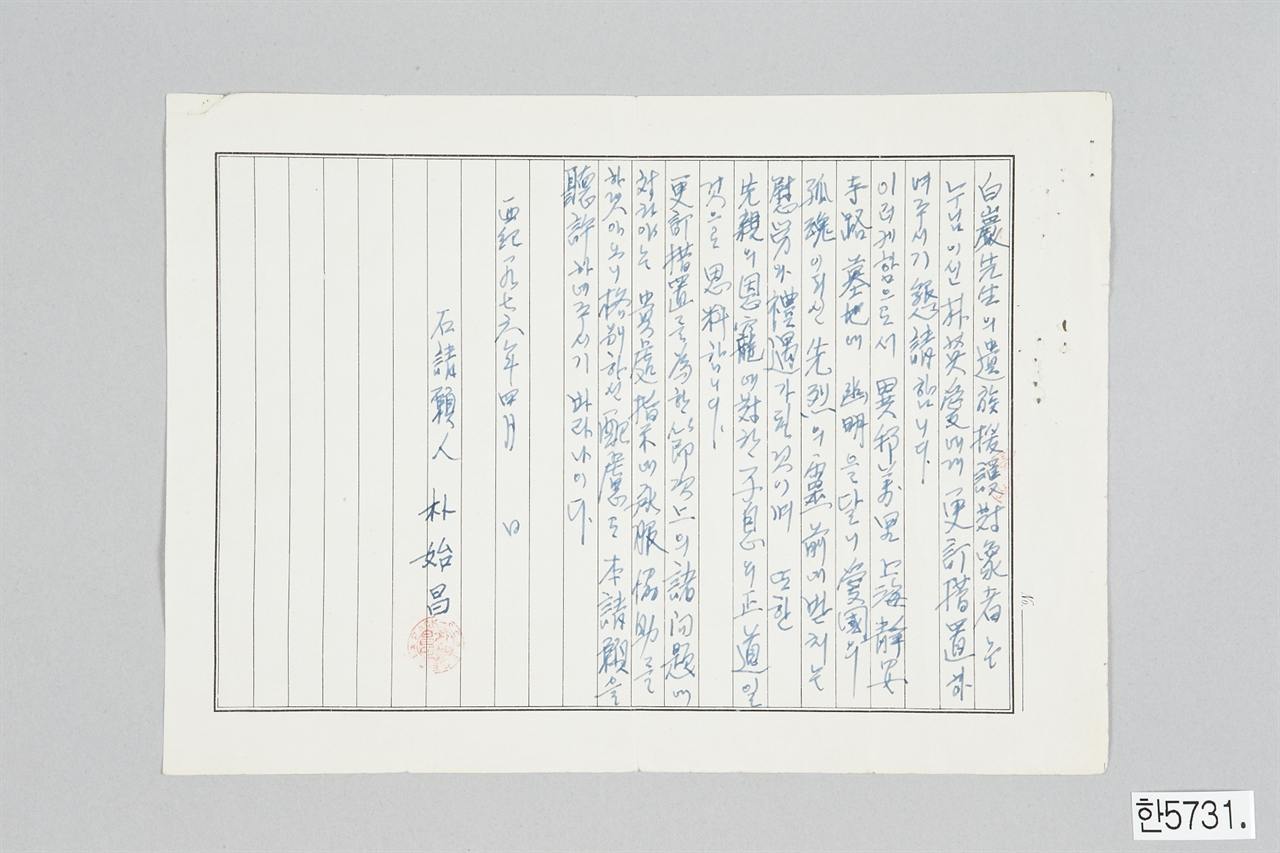 白巖先生의 遺族援護對象者는
누님이신 朴英愛에게 更訂措置하
여주시기 懇請합니다.
이러게함으로서 異邦萬里 上海靜安
寺路 墓地에 幽明을달니 愛國의
孤魂이되신 先烈의 靈前에받치는
慰勞와 禮遇가될것이며 또한
先親의 恩寵에對한 子息의 正道일
것으로 思料합니다.
更訂措置를 爲한 節次上의 諸問題에
対하야는 貴處指示에 承服協助를
할것이오니 格別하신 配慮로 本請願을
聽許하여주시기 바라나이다.
西紀一九七六年 四月 日
右請願人 朴始昌
한5731.